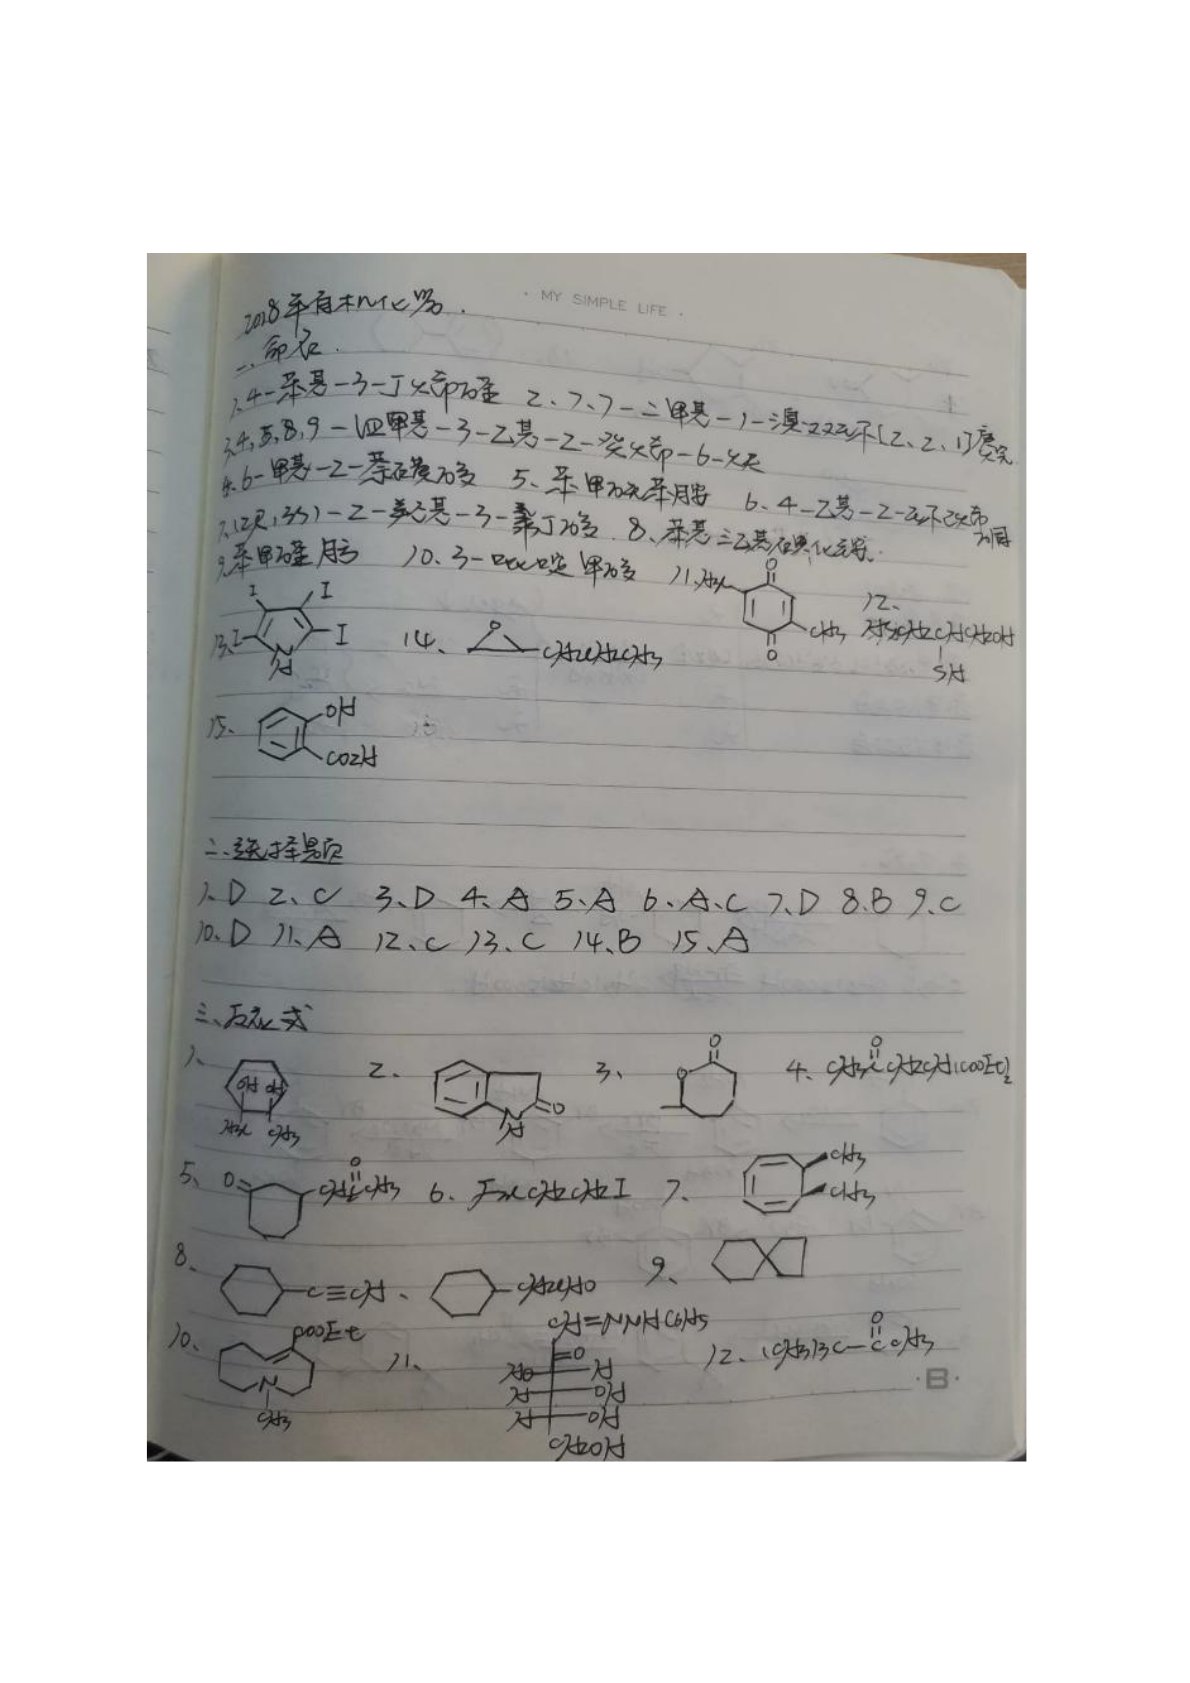 · MY SIMPLE LIFE ·
2018年有机化学.
一、命名.
1、4-苯基-3-丁烯醛 2、7,7-二甲基-1-溴双环[2、2、1]庚烷
3、4,5,8,9-四甲基-3-乙基-2-癸烯-6-炔
4、6-甲基-2-萘磺酸 5、苯甲酰苯胺 6、4-乙基-2-环己烯酮
7、(2R,3S)-2-氨基-3-氯丁酸 8、苯基三乙基碘化铵.
9、苯甲醛肟 10、3-吡啶甲酸 11、H3C O O CH3 12、CH3CH2CHCH2OH SH
13、I I I I N H 14、O CH2CH2CH3
15、OH CO2H
二、选择题
1、D 2、C 3、D 4、A 5、A 6、A、C 7、D 8、B 9、C
10、D 11、A 12、C 13、C 14、B 15、A
三、反应式
1、OH OH H3C CH3 2、N H O 3、O O 4、CH3CCH2CH(COOEt)2 O
5、O CH2CCH3 O 6、F3CCH2CH2I 7、CH3 CH3
8、C≡CH、CH2CHO 9、
10、COOEt N CH3 11、CH=NNHC6H5 =O HO H H OH H OH CH2OH 12、(CH3)3C-CCH3 O
·B·